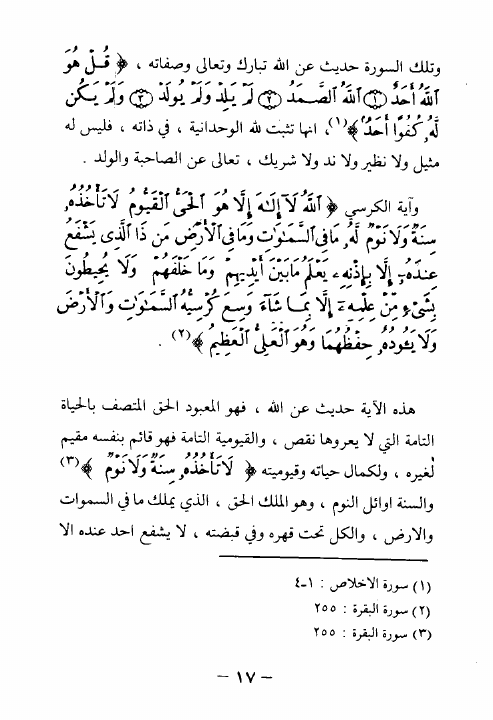 وتلك السورة حديث عن الله تبارك وتعالى وصفاته ، ﴿ قُلْ هُوَ
ٱللَّهُ أَحَدٌ ﴿١﴾ ٱللَّهُ ٱلصَّمَدُ ﴿٢﴾ لَمْ يَلِدْ وَلَمْ يُولَدْ ﴿٣﴾ وَلَمْ يَكُن
لَّهُۥ كُفُوًا أَحَدٌۢ ﴾(١)، انها تثبت لله الوحدانية ، في ذاته ، فليس له
مثيل ولا نظير ولا ند ولا شريك ، تعالى عن الصاحبة والولد .
وآية الكرسي ﴿ ٱللَّهُ لَآ إِلَٰهَ إِلَّا هُوَ ٱلْحَىُّ ٱلْقَيُّومُ لَا تَأْخُذُهُۥ
سِنَةٌ وَلَا نَوْمٌ لَّهُۥ مَا فِى ٱلسَّمَٰوَٰتِ وَمَا فِى ٱلْأَرْضِ مَن ذَا ٱلَّذِى يَشْفَعُ
عِندَهُۥٓ إِلَّا بِإِذْنِهِۦ يَعْلَمُ مَا بَيْنَ أَيْدِيهِمْ وَمَا خَلْفَهُمْ وَلَا يُحِيطُونَ
بِشَىْءٍ مِّنْ عِلْمِهِۦٓ إِلَّا بِمَا شَآءَ وَسِعَ كُرْسِيُّهُ ٱلسَّمَٰوَٰتِ وَٱلْأَرْضَ
وَلَا يَـُٔودُهُۥ حِفْظُهُمَا وَهُوَ ٱلْعَلِىُّ ٱلْعَظِيمُ ﴾(٢) .
هذه الآية حديث عن الله ، فهو المعبود الحق المتصف بالحياة
التامة التي لا يعروها نقص ، والقيومية التامة فهو قائم بنفسه مقيم
لغيره ، ولكمال حياته وقيوميته ﴿ لَا تَأْخُذُهُۥ سِنَةٌ وَلَا نَوْمٌ ﴾(٣)
والسنة اوائل النوم ، وهو الملك الحق ، الذي يملك ما في السموات
والارض ، والكل تحت قهره وفي قبضته ، لا يشفع احد عنده الا
(١) سورة الاخلاص : ١ـ٤
(٢) سورة البقرة : ٢٥٥
(٣) سورة البقرة : ٢٥٥
– ١٧ –